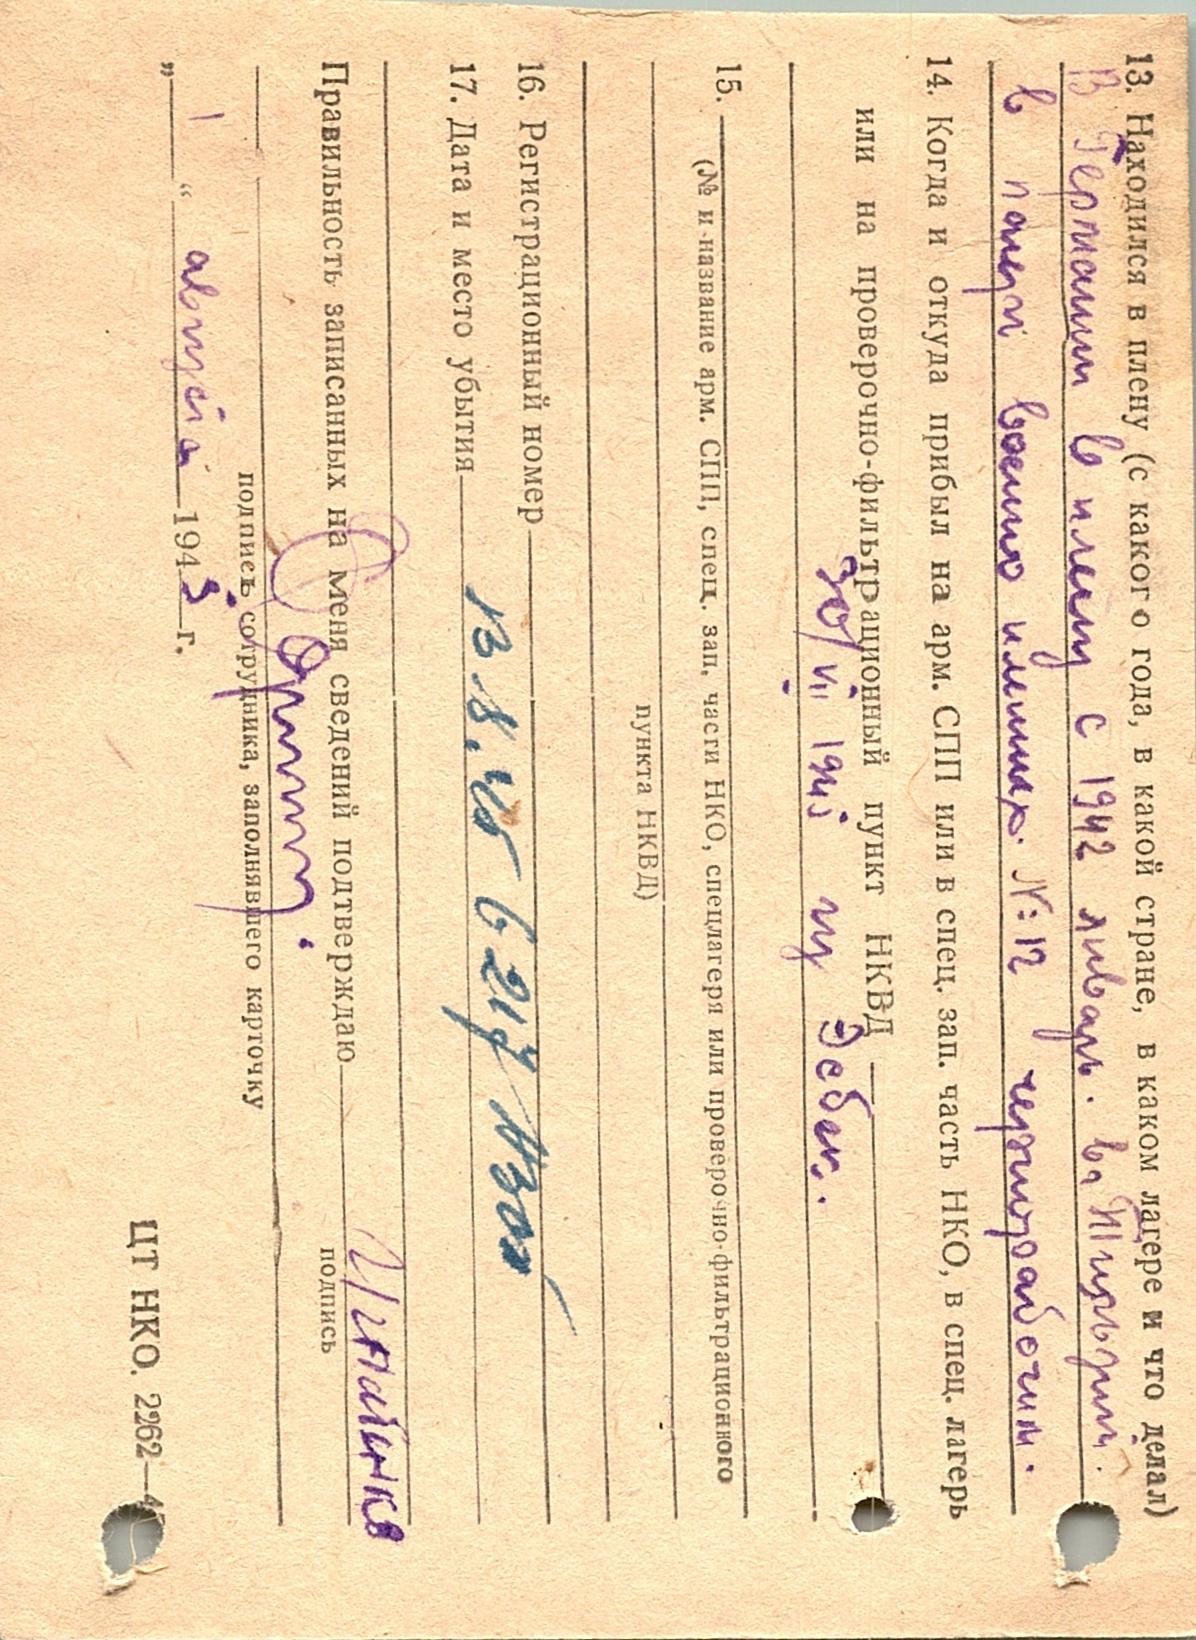 13. Находился в плену (с какого года, в какой стране, в каком лагере и что делал)
В Германии в плену с 1942 январь. в г.
в лагери военно пленных №12 чернорабочим.
14. Когда и откуда прибыл на арм. СПП или в спец. зап. часть НКО, в спец. лагерь
или на проверочно-фильтрационный пункт НКВД
30/VII 1945 из
15.
(№ и название арм. СПП, спец. зап. части НКО, спецлагеря или проверочно-фильтрационного
пункта НКВД)
16. Регистрационный номер
17. Дата и место убытия 13.8.45 в 21
Правильность записанных на меня сведений подтверждаю
подпись
подпись сотрудника, заполнявшего карточку
„ 1 “ августа 1945 г.
ЦТ НКО. 2262—4